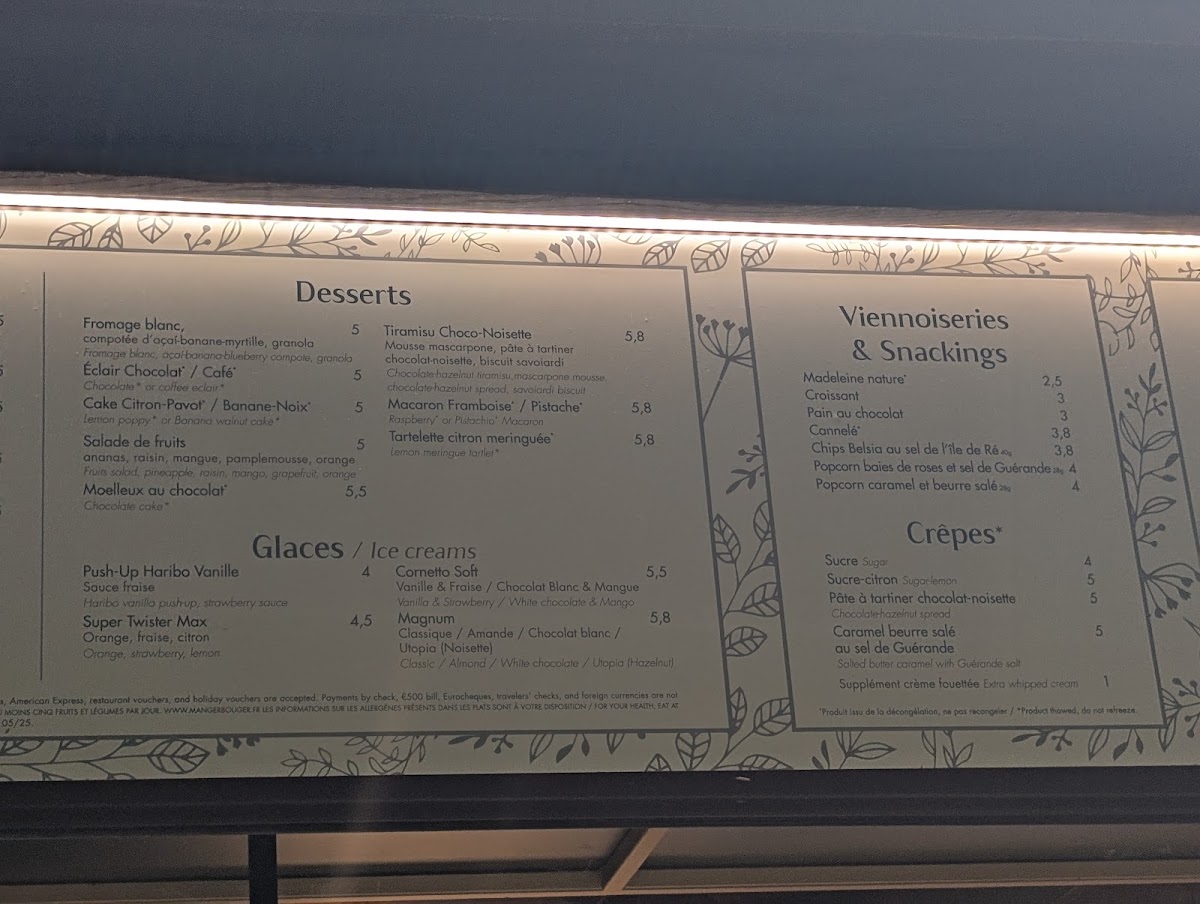 Desserts
Fromage blanc, 5
compotée d'açaï-banane-myrtille, granola
Fromage blanc, açaï-banana-blueberry compote, granola
Éclair Chocolat* / Café* 5
Chocolate* or coffee eclair*
Cake Citron-Pavot* / Banane-Noix* 5
Lemon poppy* or Banana walnut cake*
Salade de fruits 5
ananas, raisin, mangue, pamplemousse, orange
Fruits salad, pineapple, raisin, mango, grapefruit, orange
Moelleux au chocolat* 5,5
Chocolate cake*
Tiramisu Choco-Noisette 5,8
Mousse mascarpone, pâte à tartiner
chocolat-noisette, biscuit savoiardi
Chocolate-hazelnut tiramisu, mascarpone mousse,
chocolate-hazelnut spread, savoiardi biscuit
Macaron Framboise* / Pistache* 5,8
Raspberry* or Pistachio* Macaron
Tartelette citron meringuée* 5,8
Lemon meringue tartlet*
Glaces / Ice creams
Push-Up Haribo Vanille 4
Sauce fraise
Haribo vanilla push-up, strawberry sauce
Super Twister Max 4,5
Orange, fraise, citron
Orange, strawberry, lemon
Cornetto Soft 5,5
Vanille & Fraise / Chocolat Blanc & Mangue
Vanilla & Strawberry / White chocolate & Mango
Magnum 5,8
Classique / Amande / Chocolat blanc /
Utopia (Noisette)
Classic / Almond / White chocolate / Utopia (Hazelnut)
American Express, restaurant vouchers, and holiday vouchers are accepted. Payments by check, €500 bill, Eurocheques, travelers' checks, and foreign currencies are not
MOINS CINQ FRUITS ET LÉGUMES PAR JOUR. WWW.MANGERBOUGER.FR LES INFORMATIONS SUR LES ALLERGÈNES PRÉSENTS DANS LES PLATS SONT À VOTRE DISPOSITION / FOR YOUR HEALTH, EAT AT
05/25.
Viennoiseries
& Snackings
Madeleine nature* 2,5
Croissant 3
Pain au chocolat 3
Cannelé* 3,8
Chips Belsia au sel de l'île de Ré 40g 3,8
Popcorn baies de roses et sel de Guérande 28g 4
Popcorn caramel et beurre salé 28g 4
Crêpes*
Sucre Sugar 4
Sucre-citron Sugar-lemon 5
Pâte à tartiner chocolat-noisette 5
Chocolate-hazelnut spread
Caramel beurre salé 5
au sel de Guérande
Salted butter caramel with Guérande salt
Supplément crème fouettée Extra whipped cream 1
*Produit issu de la décongélation, ne pas recongeler / *Product thawed, do not refreeze.